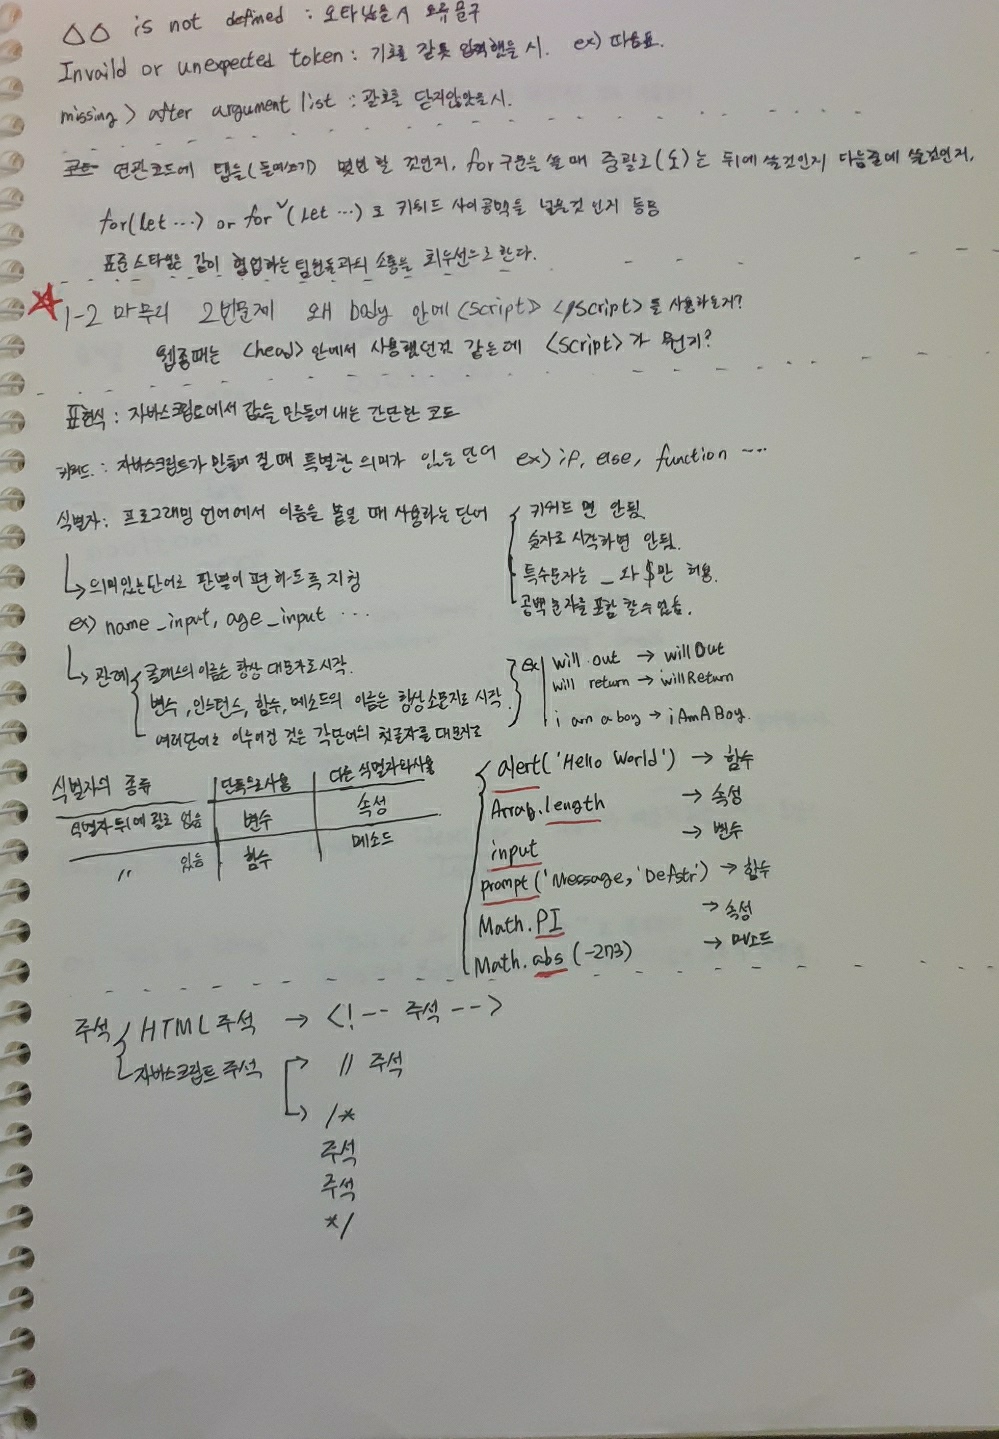 △△ is not defined : 오타났을 시 오류문구
Invaild or unexpected token : 기호를 잘못 입력했을 시. ex) 따옴표.
missing ) after argument list : 괄호를 닫지않았을시.
연관코드에 탭을(들여쓰기) 몇번 할 것인지, for 구문을 쓸 때 중괄호({)는 뒤에 쓸것인지 다음줄에 쓸것인지,
for(let ...) or for ˅(let ...) 로 키워드 사이공백을 넣을것 인지 등등
표준스타일은 같이 협업하는 팀원들과의 소통을 최우선으로 한다.
☆ 1-2 마무리 2번문제 왜 body 안에 <script> </script>를 사용하는지?
때는 <head> 안에서 사용했던것 같은데 <script>가 뭔지?
표현식 : 자바스크립트에서 값을 만들어 내는 간단한 코드
키워드 : 자바스크립트가 만들어 질 때 특별한 의미가 있는 단어 ex) if, else, function ...
식별자 : 프로그래밍 언어에서 이름을 붙일 때 사용하는 단어
키워드 면 안됨.
숫자로 시작하면 안됨.
특수문자는 _ 와 $만 허용.
공백 문자를 포함 할 수 없음.
↳ 의미있는단어로 판별이 편하도록 지칭
ex) name_input, age_input ...
↳ 관례
클래스의 이름은 항상 대문자로 시작.
변수, 인스턴스, 함수, 메소드의 이름은 항상 소문자로 시작.
여러단어로 이루어진 것은 각단어의 첫글자를 대문자로
ex) will out → willOut
will return → willReturn
i am a boy → iAmABoy.
식별자의 종류 단독으로사용 다른 식별자와사용
식별자 뒤에 괄호 없음 변수 속성
〃 있음 함수 메소드
alert('Hello World') → 함수
Array.length → 속성
input → 변수
prompt('Message, 'Defstr') → 함수
Math.PI → 속성
Math.abs(-273) → 메소드
주석 HTML 주석 → <!-- 주석 -->
자바스크립트 주석 → // 주석
→ /*
주석
주석
*/